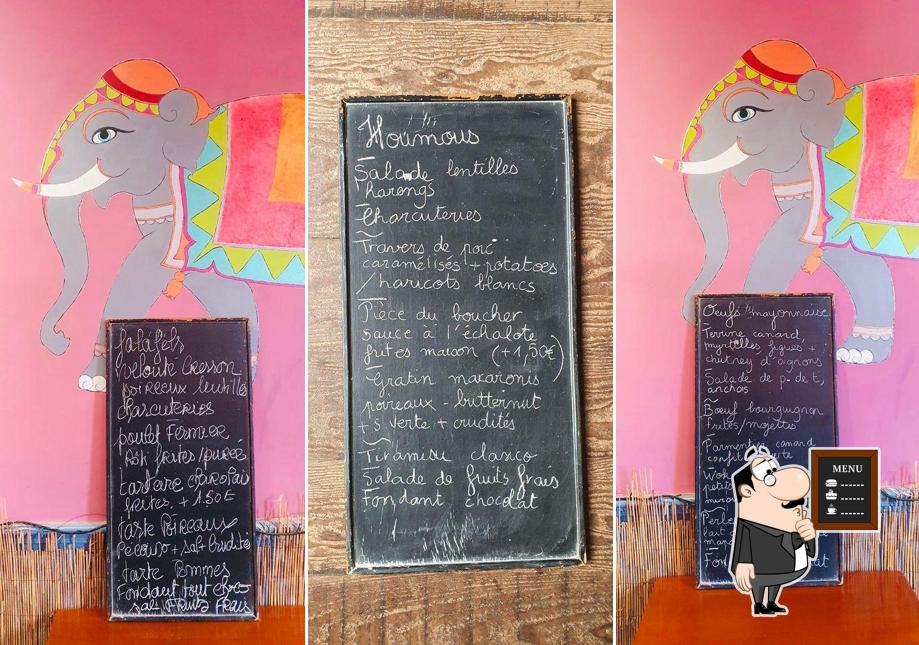 falafels
velouté Cresson
poireaux lentilles
charcuteries
poulet Fermier
Rôti frites/purée
tartare charolais
frites + 1.50€
tarte Poireaux
Pecorino + sal+ crudités
tarte Pommes
Fondant tout choco
sal. Fruits Frais
Houmous
Salade lentilles
harengs
Charcuteries
Travers de porc
caramélisés + potatoes
/haricots blancs
Pièce du boucher
sauce à l'échalote
frites maison (+1,50€)
Gratin macaronis
poireaux - butternut
+ s. verte + crudités
Tiramisu classico
Salade de fruits frais
Fondant chocolat
Oeufs mayonnaise
Terrine canard
myrtilles figues +
chutney d'oignons
Salade de p. de t,
anchois
Bœuf bourguignon
frites/mojettes
Parmentier canard
confit
MENU